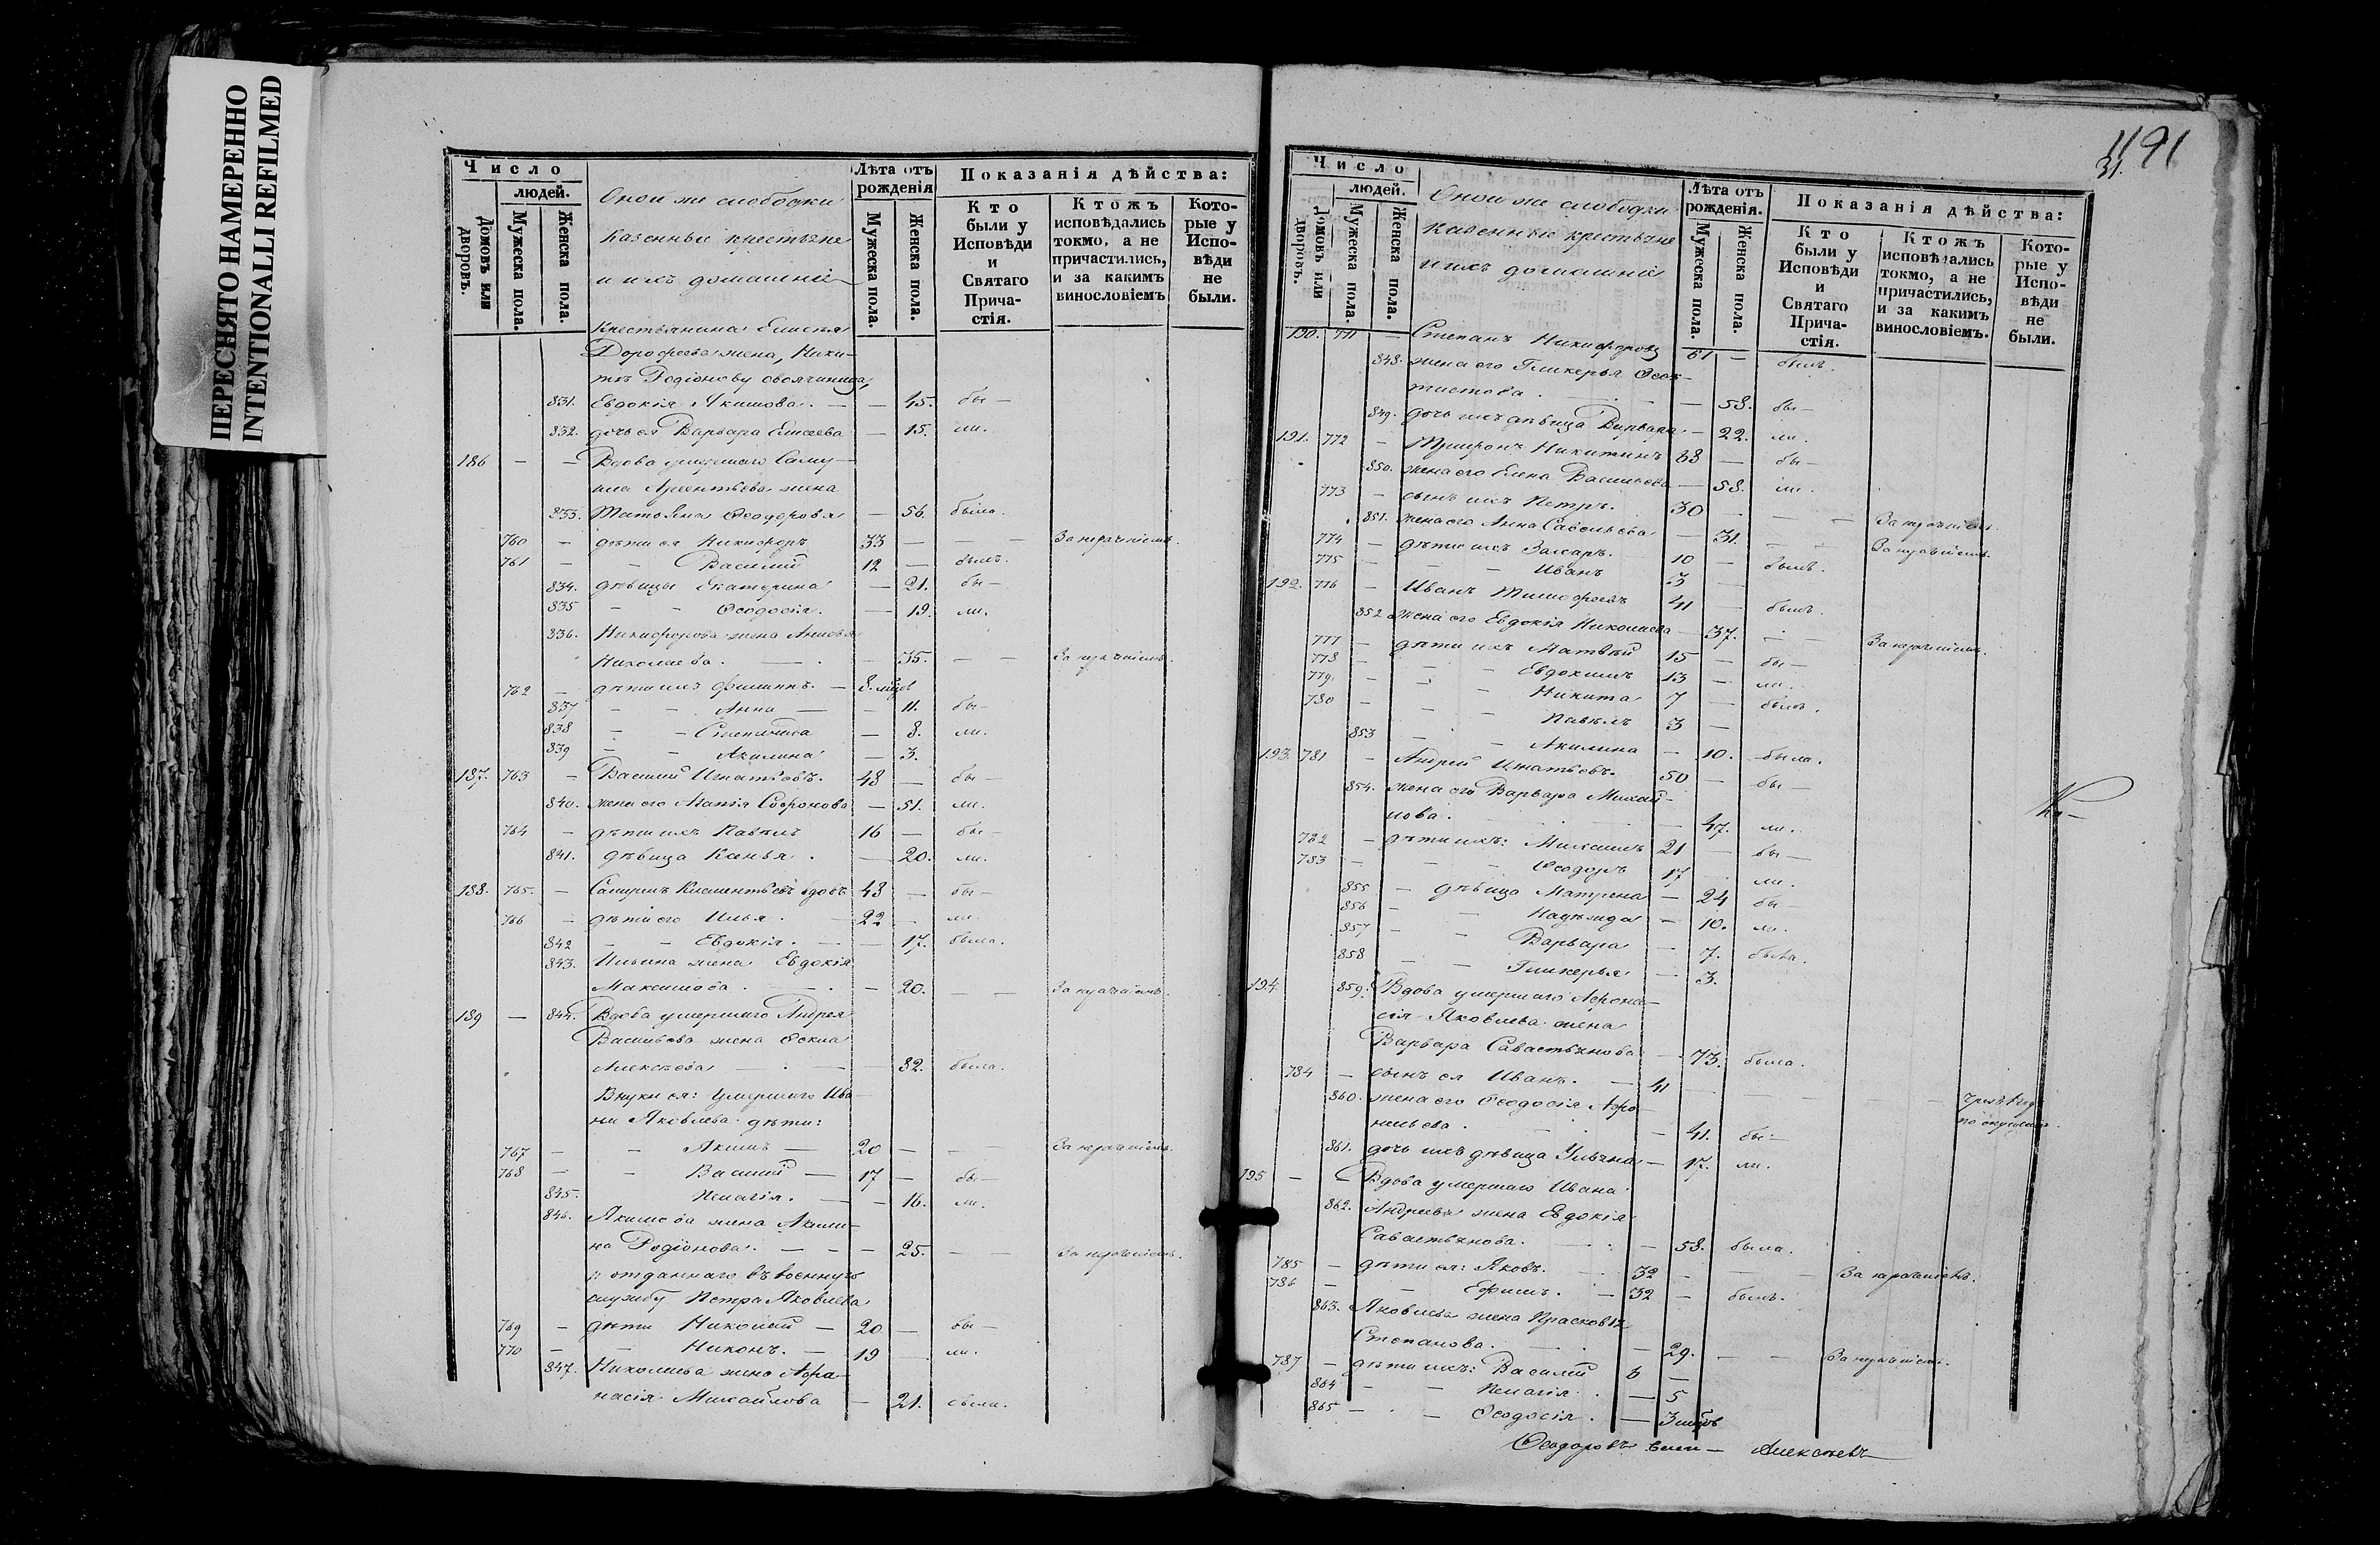 ПЕРЕСНЯТО НАМЕРЕННО
INTENTIONALLI REFILMED
Число
людей.
Домовъ или дворовъ.
Мужеска пола.
Женска пола.
Оной же слободки
казенные крестьяне
и ихъ домашніе
Лѣта отъ рожденія
Мужеска пола.
Женска пола.
Показанія дѣйства:
Кто были у Исповѣди и Святаго Причастія.
Ктожъ исповѣдались токмо, а не причастились, и за какимъ винословіемъ
Которые у Исповѣди не были.
Крестьянина Елисея
Дорофеева жена, Ники-
тѣ Родіонову свояченица,
831. Евдокія Акимова. — — 45. бы —
832. дочь ея Варвара Елисеева — 15. ли.
186 — — Вдова умершаго Саму-
ила Арсентьева жена
833. Татьяна Ѳеодорова — 56. была.
760 — дѣти ея Никифоръ 33 — — —
761 — — Василій 12 — былъ.
834. дѣвицы Екатерина — 21. бы —
835 — — Ѳеодосія. — 19. ли.
836. Никифорова жена
Николаева. — 35. — —
762 — дѣти ихъ Филиппъ. — 8. мцов
837 — — Анна — — 11. бы —
838 — — — 8. ли.
839 — — Акилина — 3.
187. 763 — Василій Игнатьевъ. 48 — бы —
840. жена его Агапія Софронова — 51. ли.
764 — дѣти ихъ Павелъ 16 — бы —
841. дѣвица Ксенья. — 20. ли.
188. 765. — Самуилъ Климентьевъ вдовъ 43 — бы —
766 — дѣти его Илья. — 22 — ли.
842 — — Евдокія. — — 17. была.
843. Ильина жена Евдокія
Максимова. — 20. — —
189 — 844. Вдова умершаго Андрея
Васильева жена Ѳекла
Алексѣева — 82. была.
Внуки ея: умершаго Ива-
на Яковлева дѣти:
767 — — Акимъ — 20 — — —
768 — — Василій — 17 — бы —
845. Пелагія. — — 16. ли.
846. Якимова жена Акили-
на Родіонова. — — — 25. — —
и отданнаго въ военную
службу Петра Яковлева
769 — дѣти Николай — 20 — бы —
770 — — Никонъ. — 19 ли.
847. Николаева жена Афа-
насія Михайлова — 21. была.
491
31.
Число
людей.
Домовъ или дворовъ.
Мужеска пола.
Женска пола.
Оной же слободки
казенные крестьяне
и ихъ домашніе
Лѣта отъ рожденія.
Мужеска пола.
Женска пола.
Показанія дѣйства:
Кто были у Исповѣди и Святаго Причастія.
Ктожъ исповѣдались токмо, а не причастились, и за какимъ винословіемъ.
Которые у Исповѣди не были.
190. 771 — Степанъ Никифоровъ 61 — былъ.
848. жена его Гликерья Ѳеок-
тистова. — 58. бы —
849. дочь ихъ дѣвица Варвара — 22. ли.
191. 772 — Трифонъ Никитинъ 68 — бы —
850. жена его Елена Васильева — 58. ли.
773 — сынъ ихъ Петръ. 30 — — —
851. жена его Анна Савельева — 31. — —
774 — дѣти ихъ Захаръ. 10 — былъ.
775 — — — Иванъ 3 —
192. 776 — Иванъ Тимофеевъ 41 — былъ.
852 жена его Евдокія Николаева — 37. — —
777 — дѣти ихъ Матвѣй 15 — бы —
778 — — — Евдокимъ 13 — ли.
779. — — — Никита 7 — былъ.
780 — — Павелъ 3 —
853 — — Акилина — 10. была.
193. 781 — Андрей Игнатьевъ. 50 — бы —
854. жена его Варвара Михай-
лова. — 47. ли.
782 — дѣти ихъ: Михаилъ 21 — бы —
783 — — — Ѳеодоръ 17 — ли.
855 — дѣвица Матрена — 24 бы —
856 — — Надежда — 10. ли.
857 — — Варвара — 7. была.
858 — — Гликерья — 3.
194 859. Вдова умершаго Афона-
сія Яковлева жена
Варвара Савастьянова — 73. была.
784 — сынъ ея Иванъ. — 41 — — — —
860. жена его Ѳеодосія
— 41. бы —
861. дочь ихъ дѣвица Ульяна — 17. ли.
195 — Вдова умершаго Ивана
862. Андреева жена Евдокія
Савастьянова. — 58. была.
785 — дѣти ея: Яковъ. 32 — — —
786 — — Ефимъ. — 32 — былъ.
863. Яковлева жена Прасковья
Степанова. — 29. — —
787 — дѣти ихъ: Василій 6 —
864 — — Пелагія. — 5
865 — — Ѳеодосія. — 3 мцов
Алексѣевъ